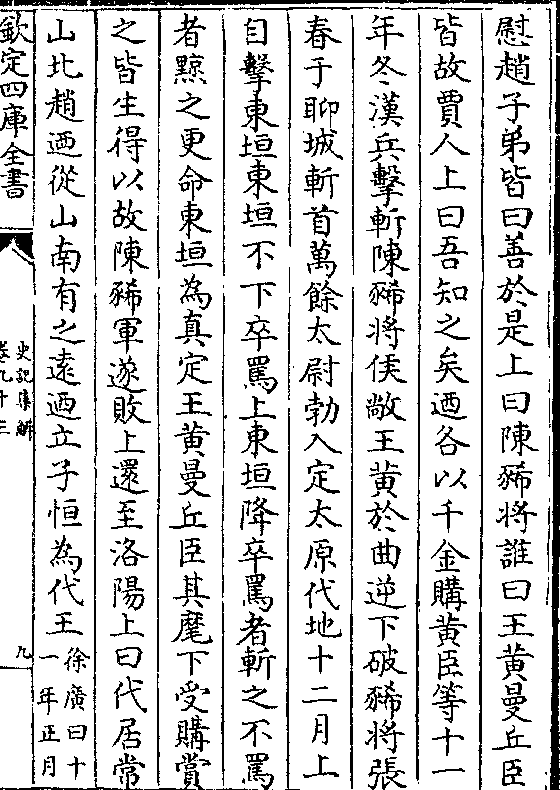 慰趙子弟皆曰善於是上曰陳豨將誰曰王黃曼丘臣
皆故賈人上曰吾知之矣迺各以千金購黃臣等十一
年冬漢兵擊斬陳豨將侯敞王黃於曲逆下破豨將張
春于聊城斬首萬餘太尉勃入定太原代地十二月上
自擊東垣東垣不下卒罵上東垣降卒罵者斬之不罵
者黥之更命東垣為真定王黃曼丘臣其麾下受購賞
之皆生得以故陳豨軍遂敗上還至洛陽上曰代居常
山北趙迺從山南有之遠迺立子恒為代王
徐廣曰十
一年正月
欽定四庫全書
史記集解
卷九十三
九